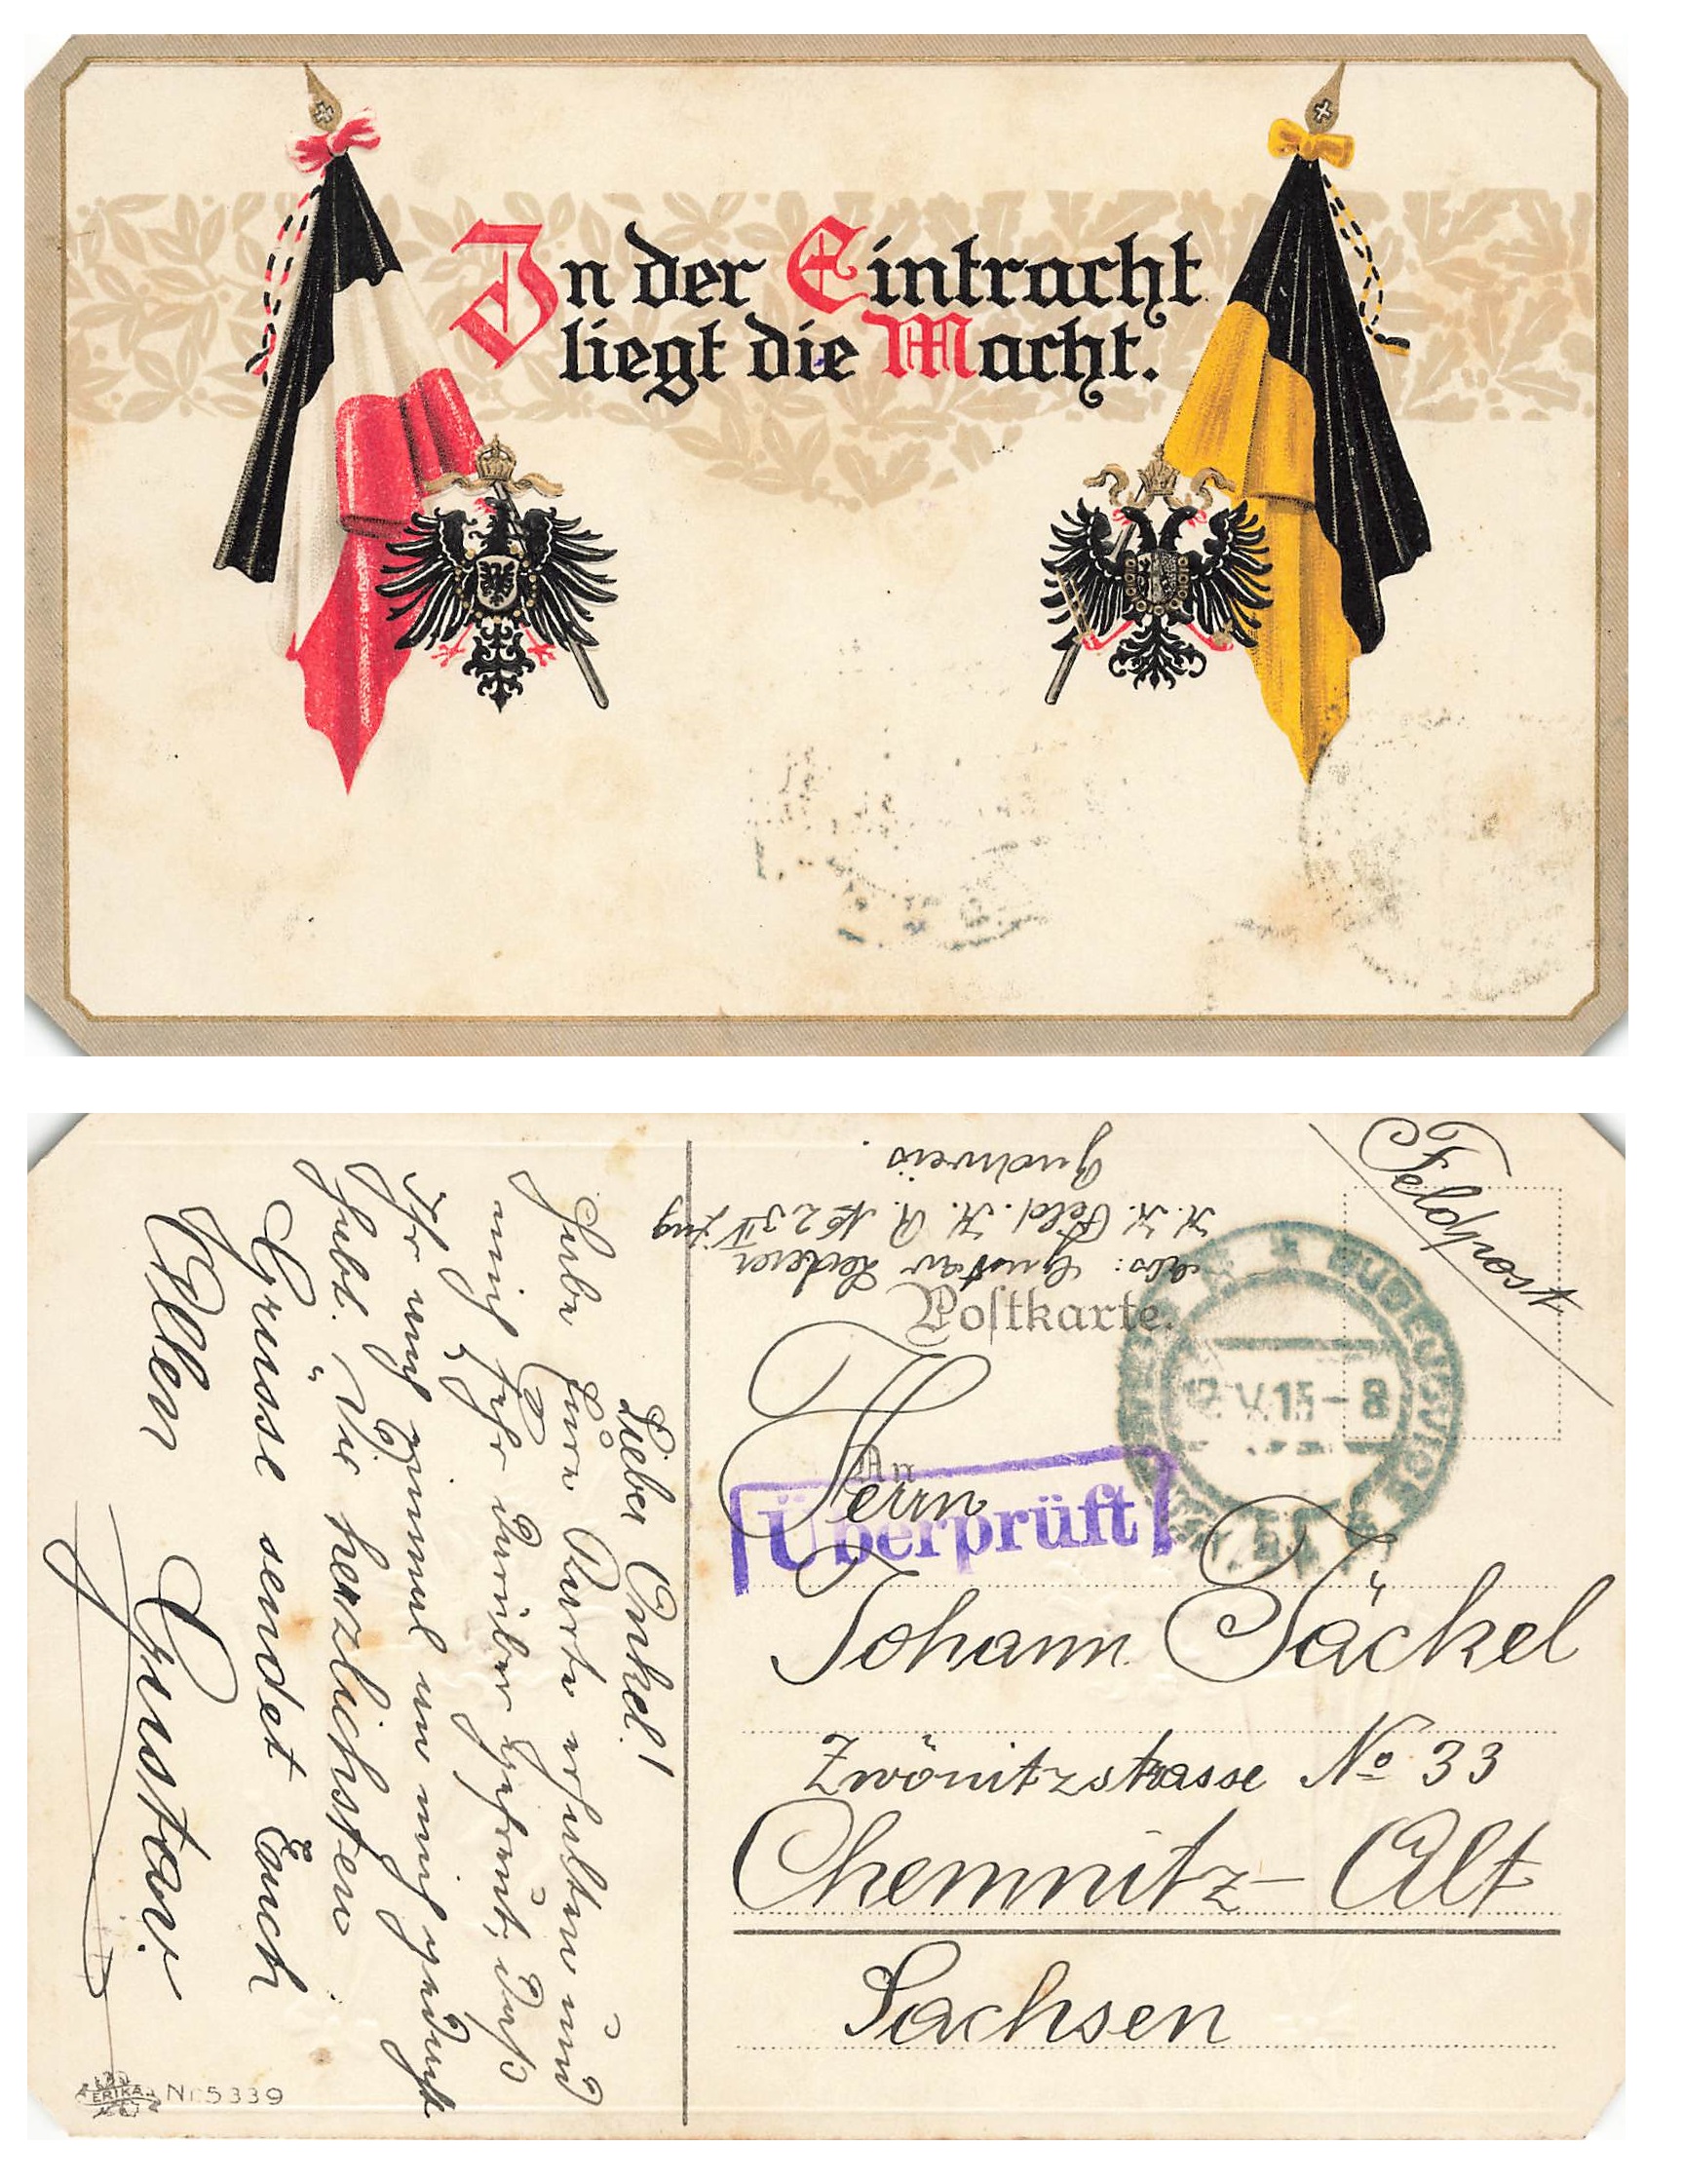 In der Eintracht
liegt die Macht.
Feldpost
Abs: Gustav Lederer
K. K. Feld. K. R. No 23 IV Zug
Budweis.
Postkarte.
12.V.15-8
An
Herrn
Überprüft
Johann Jäckel
Zwönitzstrasse No 33
Chemnitz-Alt
Sachsen
Lieber Onkel!
Habe Eure Karte erhalten und
mich sehr darüber gefreut, daß
Ihr auch einmal an mich gedacht
habt. Die herzlichsten
Grüsse sendet Euch
Allen Gustav.
ERIKA Nr. 5339